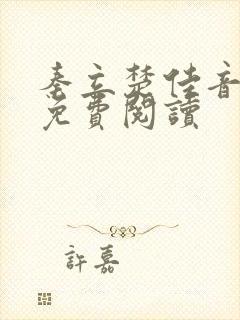 秦立楚佳音
免費閱讀
許嘉